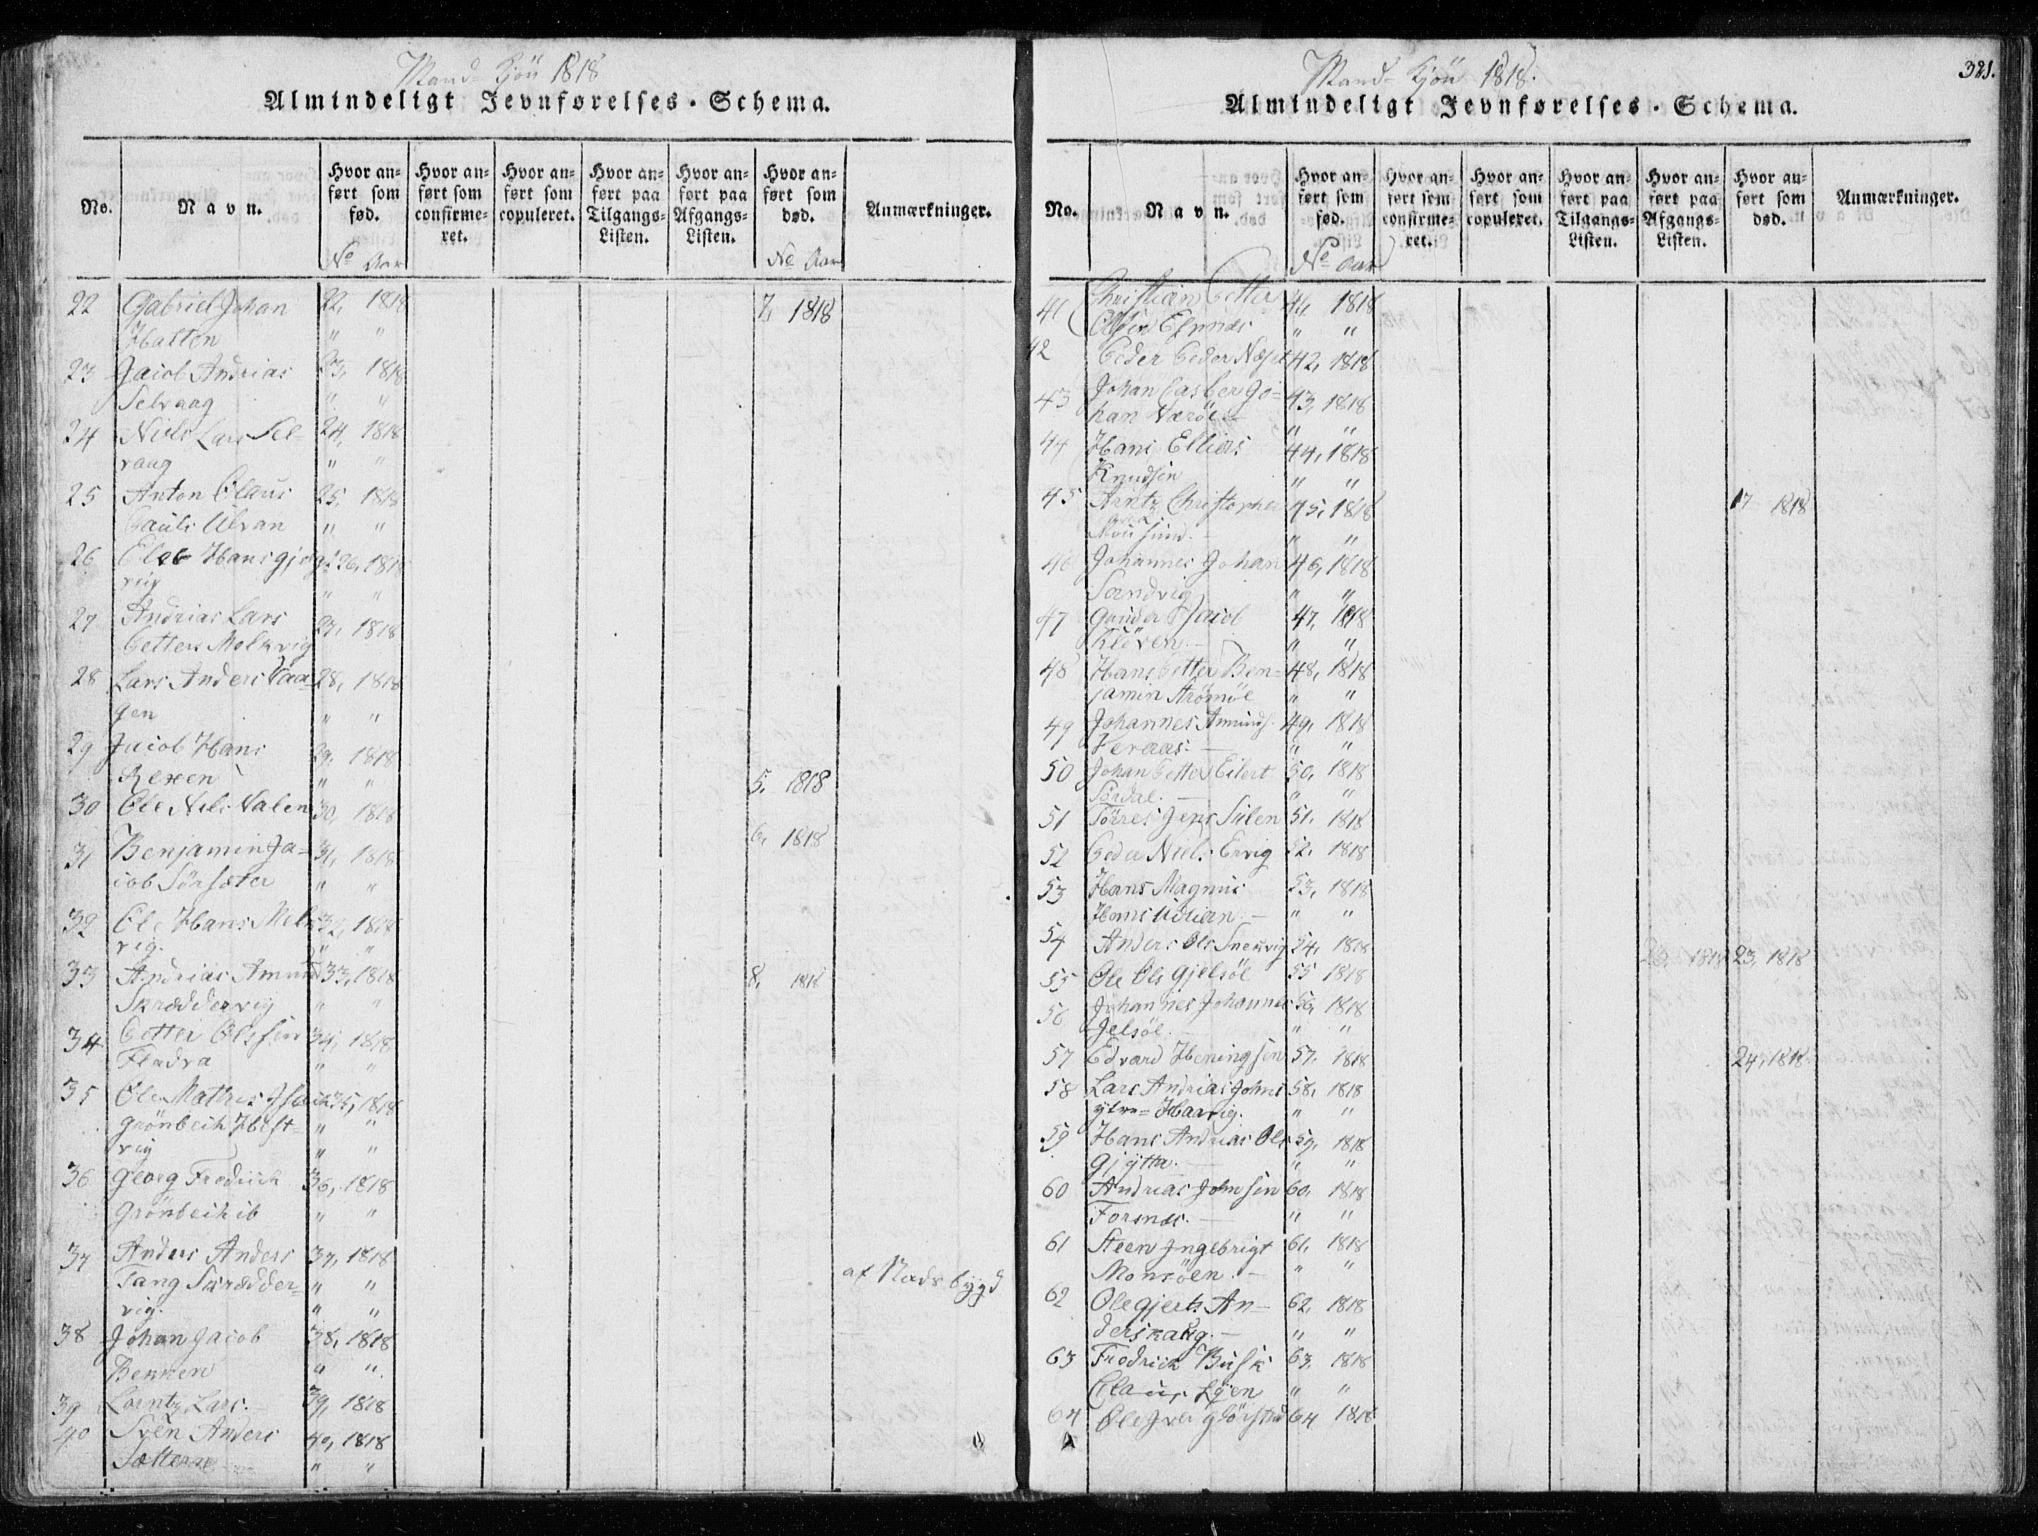 Mand-Kjön 1818
Almindeligt Jevnførelses-Schema.
No.
Navn.
Hvor anført som fød.
Hvor anført som confirmeret.
Hvor anført som copuleret.
Hvor anført paa Tilgangs-Listen.
Hvor anført paa Afgangs-Listen.
Hvor anført som død.
Anmærkninger.
No Aar
No Aar
22 Gabriel Johan 22, 1818 7, 1818
Halten " "
23 Jacob Andrias 23, 1818
Selvaag " "
24 Niels Lars Sel- 24, 1818
vaag " "
25 Anton Olaus 25, 1818
Pauls Ulvan " "
26 Hans 26, 1818
vig " "
27 Andrias Lars 27, 1818
Petters Melkvig
28 Lars Anders Vaa- 28, 1818
gen " "
29 Jacob Hans 29, 1818
Rexen " " 5, 1818
30 Ole Nels Valen 30, 1818
6, 1818
31 Benjamin Ja- 31, 1818
cob Sörsæter " "
32 Ole Hans Melk 32, 1818
vig. " "
33 Andrias Amund 33, 1818 8, 1818
Skræddervig " "
34 Petter Olssen 34, 1818
Fladra " "
35 Ole Mathis Isach 35, 1818
Grönbeck Hest- " "
vig " "
36 Georg Fredrich 36, 1818
Grönbeck ib " "
37 Anders Anders 37, 1818
Tang Skrædder- " " af Stadsbygd
vig. " "
38 Johan Jacob 38, 1818
Bekken " "
39 Lorntz Lars. 39, 1818
40 Sven Anders 40, 1818
Sætter " "
321.
Mand-Kjön 1818.
Almindeligt Jevnførelses-Schema.
No.
Navn.
Hvor anført som fød.
Hvor anført som confirmeret.
Hvor anført som copuleret.
Hvor anført paa Tilgangs-Listen.
Hvor anført paa Afgangs-Listen.
Hvor anført som død.
Anmærkninger.
No Aar
41 Christian Petter 41, 1818
" "
42 Peder Peder 42, 1818
43 Johan Casber Jo- 43, 1818
han Væröe " "
44 Hans Elliers 44, 1818
Knudsen " "
45 Arntz Christopher 45, 1818 17 1818
Mousund. " "
46 Johannes Johan 46, 1818
Sandvig " "
47 Gunder Jacob 47, 1818
Klöven. " "
48 Hans Petter Ben- 48, 1818
jamin Strömöe " "
49 Johannes Amunds. 49, 1818
Veraas. " "
50 Johan Petter Eilert 50, 1818
Sördal. " "
51 Törres Jens Sulen 51, 1818
52 Peder Niels Ervig 52, 1818
53 Hans Magnus 53, 1818
Hans Uttian. " "
54 Anders Ols Snekvig 54, 1818
55 Ole Ols Gjelsöe 55 1818 1818 23, 1818
56 Johannes Johannes 56, 1818
Jelsöe. " "
57 Edvard Heningsen 57, 1818 24, 1818
58 Lars Andrias Johns 58, 1818
ytre-Harvig. " "
59 Hans Andrias Ols 59, 1818
Gjytta. " "
60 Andrias Johnsen 60, 1818
Forsnes. " "
61 Steen Ingebrigt 61, 1818
Monsöen. " "
62 Ole Gjerts An- 62, 1818
derskaug. " "
63 Fredrich Busk 63, 1818
Claus " "
64 Ole Iver 64 1818